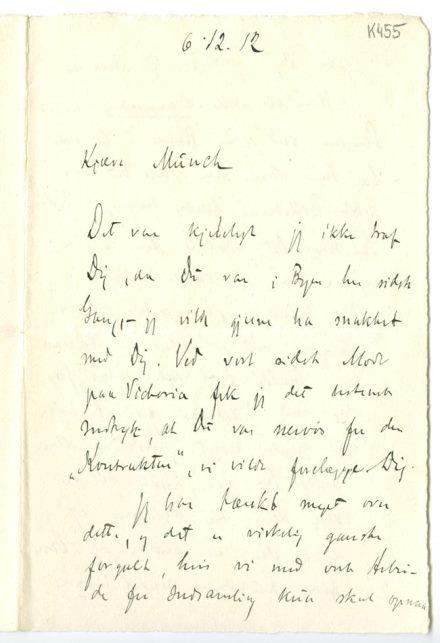 K455
6·12.12
Kjære Munch
Det var kjedeligt jeg ikke traf
Dig, da Du var i Byen her sidste
Gang, – jeg vilde gjerne ha snakket
med Dig. Ved vort sidste Møde
paa Victoria fik jeg det bestemte
Indtryk, at Du var nervøs for den
„Kontrakten“, vi vilde forelægge Dig.
Jeg har tænkt meget over
dette, og det er virkelig ganske
forgalt, hvis vi med vort Arbei-
de for Indsamling kun skal opnaa